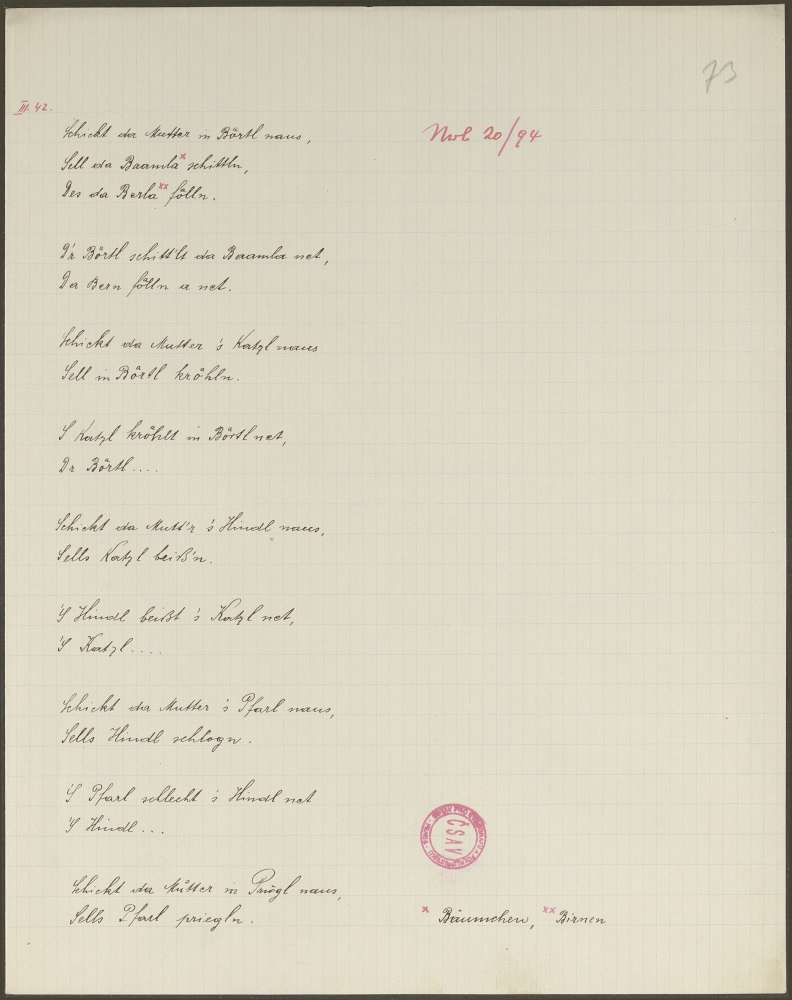 73
III. 42.
Nvl 20/94
Schickt da Mutter in Börtl naus,
Sell da Baamla x schittln,
Des da Berla xx fölln.
D'r Börtl schitt'lt da Baamla net,
Da Bern fölln a net.
Schickt da Mutter 's Katzl naus
Sell in Börtl kröhln.
S Katzl kröhlt in Börtl net,
Dr Börtl....
Schickt da Mutt'r 's Hindl naus,
Sells Katzl beiß'n.
'S Hindl beißt 's Katzl net,
'S Katzl....
Schickt da Mutter 's Pfarl naus,
Sells Hindl schlogn.
'S Pfarl schlecht 's Hindl net
'S Hindl...
Schickt da Mutter in Priegl naus,
Sells Pfarl priegln.
ČSAV
x Bäumchen, xx Birnen